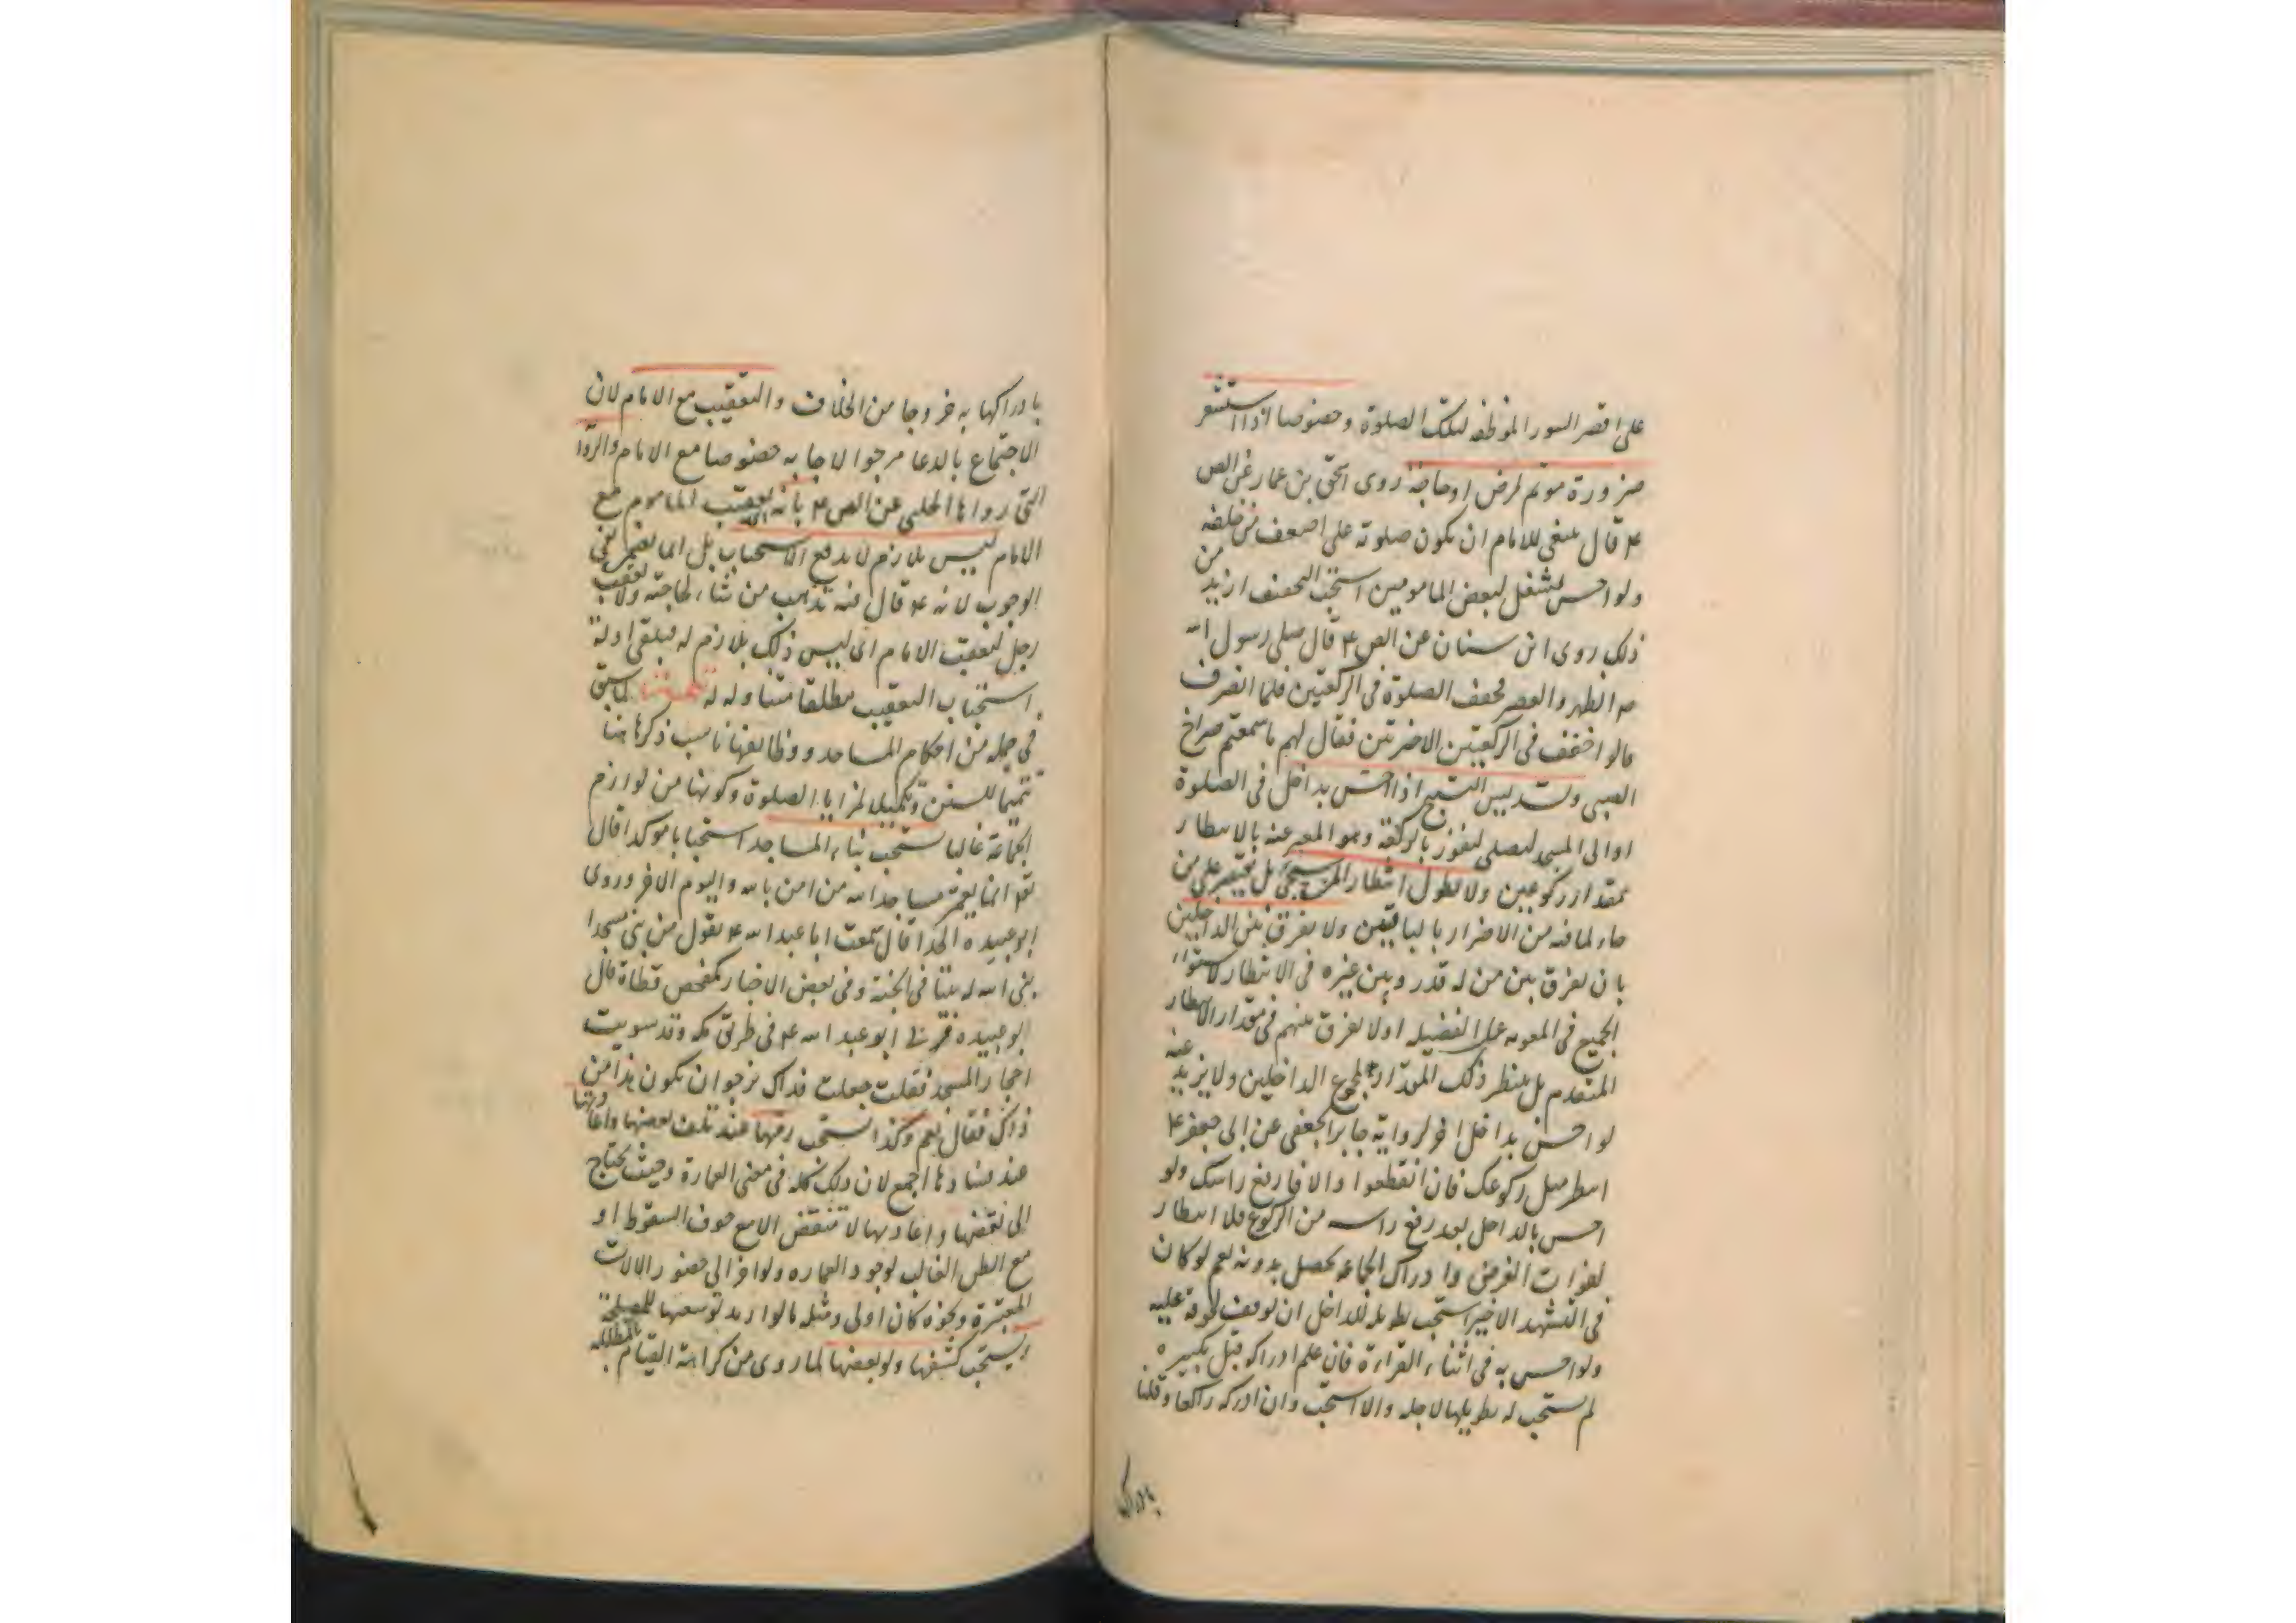 على اقصر السور الموظفه لتلك الصلوة وخصوصا اذا استشعر
ضرورة موتم لمرض او حاجة روى اسحق بن عمار عن الص
ع قال ينبغي للامام ان يكون صلوته على اضعف من خلفه
ولو احس بشغل لبعض المامومين استحب التخفيف ازيد من
ذلك روى ابن سنان عن الص ع قال صلى رسول الله
ص الظهر والعصر فخفف الصلوة في الركعتين فلما انصرف
قالوا خففت في الركعتين الاخرتين فقال لهم ما سمعتم صراخ
الصبى وتسديس التسبيح اذا احس بداخل في الصلوة
او الى المسجد ليصلى ليفوز بالركعة وهو المعبر عنه بالانتظار
بمقدار ركوعين ولا يطول انتظار المن سيجئ بل يقتصر على من
جاء لما فيه من الاضرار بالباقين ولا يفرق بين الداخلين
بان يفرق بين من له قدر وبين غيره في الانتظار لاستواء
الجميع في المعونه على الفضيله او لا يفرق بينهم في مقدار الانتظار
المتقدم بل ينتظر ذلك المقدار لمجموع الداخلين ولا يزيد عنه
لو احس بداخل اخر لرواية جابر الجعفى عن ابى جعفر ع
انتظر مثلى ركوعك فان انقطعوا والا فارفع راسك ولو
احس بالداخل بعد رفع راسه من الركوع فلا انتظار
لفوات الغرض وادراك الجماعة يحصل بدونه نعم لو كان
في التشهد الاخير استحب تطويله للداخل ان توقف لحوقه عليه
ولو احس به في اثناء القراءة فان علم ادراكه قبل تكبيره
لم يستحب له تطويلها لاجله والا استحب وان ادركه راكعا وقلنا
بادراكها
بادراكها به خروجا من الخلاف والتعقيب مع الامام لان
الاجتماع بالدعا مرجوا الاجابه خصوصا مع الامام والروا
التى رواها الحلبى عن الص ع بانه تعقيب الماموم مع
الامام ليس بلازم لا يدفع الاستحباب بل انما نفى
الوجوب لانه ع قال فيه يذهب من شاء لحاجته ولا يعقب
رجل لتعقيب الامام اى ليس ذلك بلازم له فيبقى ادلة
استحباب التعقيب مطلقا متناوله له
في جمله من احكام المساجد ووظايفها ناسب ذكرها هنا
تتميما للسنن وتكميلا لمزايا الصلوة وكونها من لوازم
الجماعة غالبا يستحب بناء المساجد استحبابا موكدا قال
تع انما يعمر مساجد الله من امن بالله واليوم الاخر وروى
ابو عبيده الحذا قال سمعت ابا عبد الله ع يقول من بنى مسجدا
بنى الله له بيتا في الجنة وفى بعض الاخبار كمفحص قطاة قال
ابو عبيده فمر بى ابو عبد الله ع في طريق مكه وقد سويت
احجار المسجد فقلت جعلت فداك نرجو ان يكون هذا من
ذاك فقال نعم وكذا يستحب رمها عند تلف بعضها واعادتها
عند فسادها اجمع لان ذلك كله في معنى العمارة وحيث يحتاج
الى نقضها واعادتها لا تنقض الا مع خوف السقوط او
مع الظن الغالب لوجود العماره ولو اخر الى حضور الالات
المعتبرة ونحوه كان اولى ومثله ما لو اريد توسعتها للمصلحة
ويستحب كشفها ولو بعضها لما روى من كراهة القيام بالمظلله